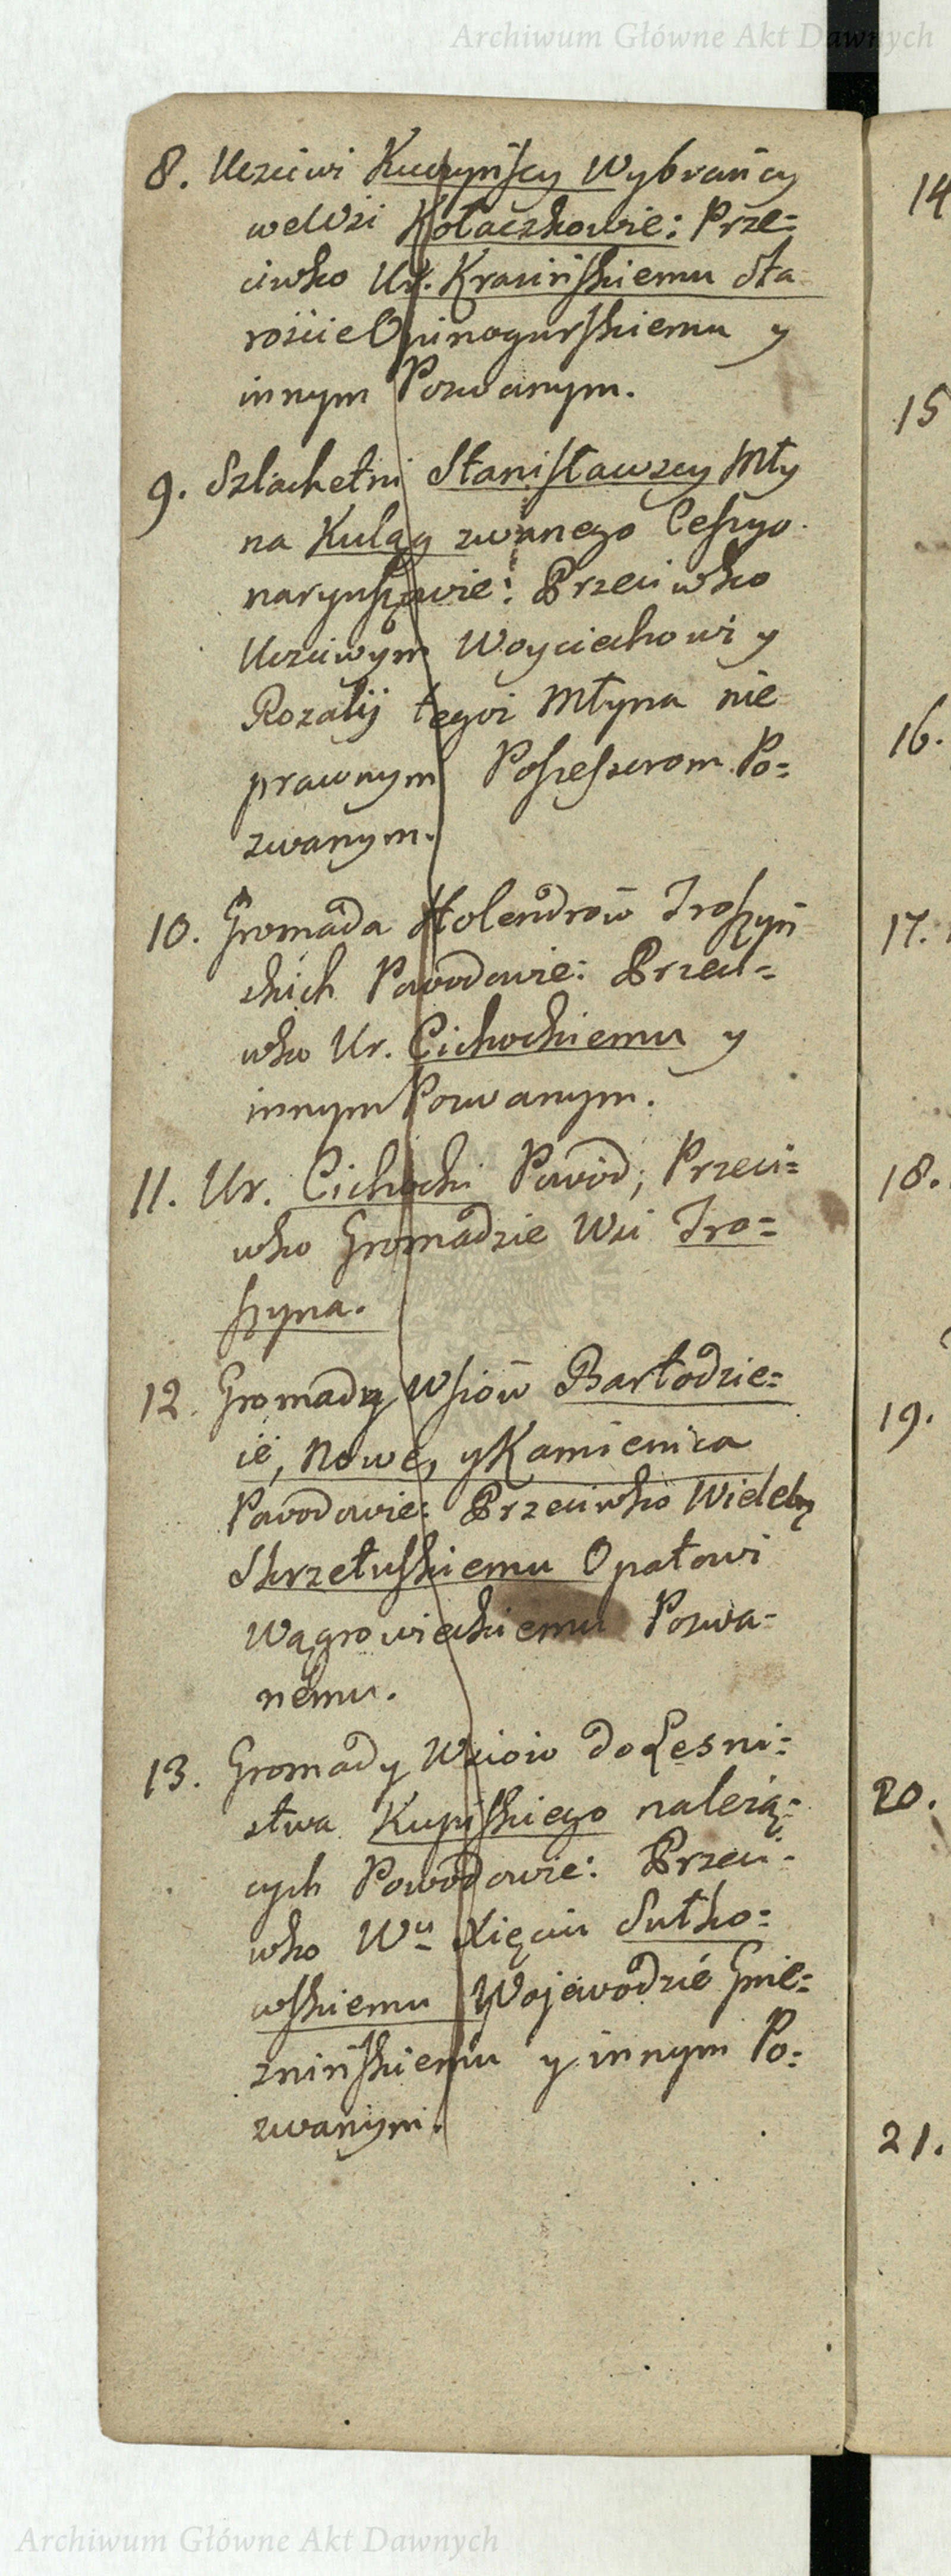 Archiwum Główne Akt Dawnych
8. Uczciwi Kuczyńscy Wybrańcy
we Wsi Kołaczkowie: Prze=
ciwko Ur. Krasińskiemu Sta
rościie Opinogurskiemu y
innym Pozwanym.
9. Szlachetni Stanisławscy Mły
na Kuląg zwanego Cessyo
naryuszowie: Przeciwko
Uczciwym Woyciechowi y
Rozalij tegoż Młyna nie
prawnym Possessorom Po=
zwanym.
10. Gromada Holendrów Troszyń
skich Powodowie: Przeci=
wko Ur. Cichockiemu y
innym Pozwanym.
11. Ur. Cichocki Powód; Przeci=
wko Gromadzie Wsi Tro=
szyna.
12. Gromady Wsiów Bartodzie=
ie, Nowe, y Kamienica
Powodowie: Przeciwko Wielebn
Skrzetuskiemu Opatowi
Wągrowieckiemu Pozwa=
nemu.
13. Gromady Wsiow do Leśni=
stwa Kupiskiego należą=
cych Powodowie: Przeci=
wko Wu Xięciu Sułko=
wskiemu Wojewodzie Gnie=
znińskiemu y innym Po=
zwanym.
14
15
16.
17.
18.
19.
20.
21.
Archiwum Główne Akt Dawnych